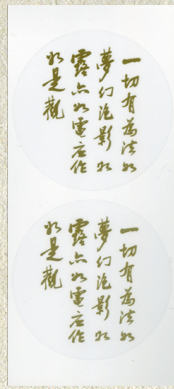 一切有為法如
夢幻泡影如
露亦如電應作
如是觀
一切有為法如
夢幻泡影如
露亦如電應作
如是觀